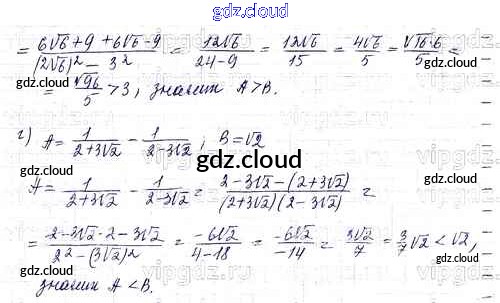 gdz.cloud
= (6√6 + 9 + 6√6 - 9)/((2√6)² - 3²) = 12√6/(24 - 9) = 12√6/15 = 4√6/5 = √(16·6)/5 =
gdz.cloud gdz.cloud
= √96/5 > 3, значит A > B.
г) A = 1/(2+3√2) - 1/(2-3√2); B = √2
gdz.cloud
A = 1/(2+3√2) - 1/(2-3√2) = (2-3√2-(2+3√2))/((2+3√2)(2-3√2)) =
= (2-3√2-2-3√2)/(2²-(3√2)²) = -6√2/(4-18) = -6√2/-14 = 3√2/7 = 3/7√2 < √2,
gdz.cloud gdz.cloud
значит A < B.
gdz.cloud